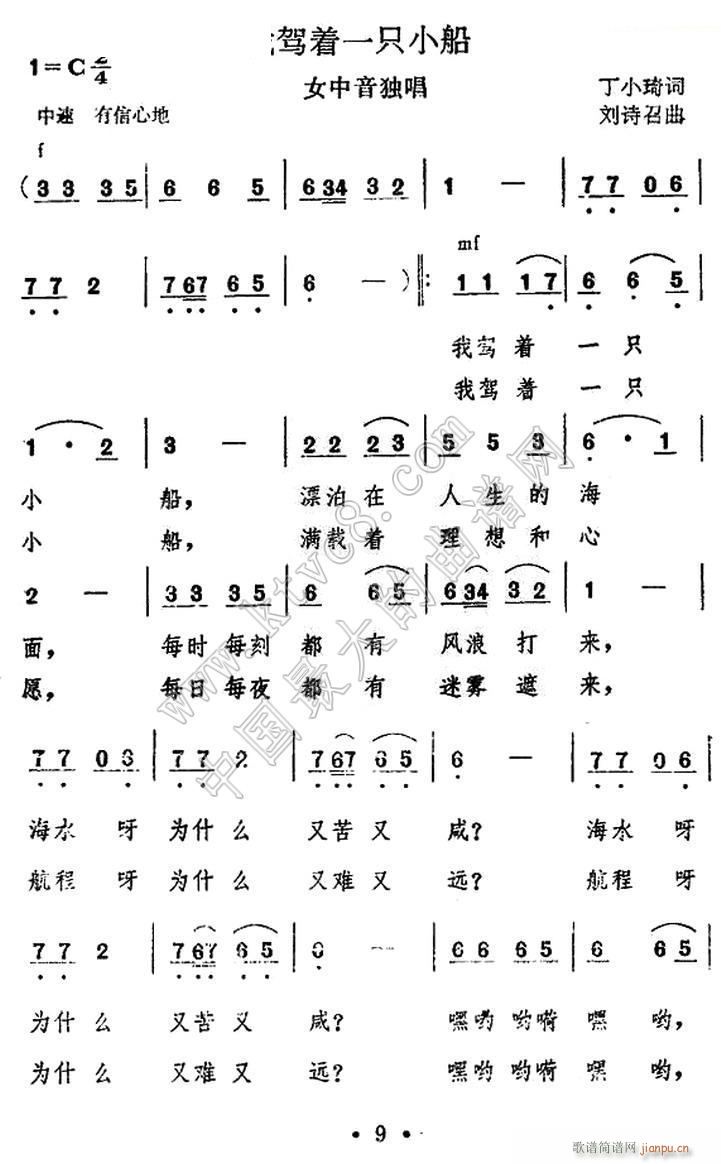 驾着一只小船
1=C 2/4
女中音独唱
丁小琦词
中速 有信心地
刘诗召曲
f
(3 3 3 5 | 6 6 5 | 6 3 4 3 2 | 1 — | 7 7 0 6 |
mf
7 7 2 | 7 6 7 6 5 | 6 — )‖: 1 1 1 7 | 6 6 5 |
我驾着一只
我驾着一只
1 · 2 | 3 — | 2 2 2 3 | 5 5 3 | 6 · 1 |
小 船, 漂泊在 人生的海
小 船, 满载着 理想和心
2 — | 3 3 3 5 | 6 6 5 | 6 3 4 3 2 | 1 — |
面, 每时每刻 都有 风浪打 来,
愿, 每日每夜 都有 迷雾遮 来,
7 7 0 6 | 7 7 2 | 7 6 7 6 5 | 6 — | 7 7 0 6 |
海水 呀 为什么 又苦又 咸? 海水 呀
航程 呀 为什么 又难又 远? 航程 呀
7 7 2 | 7 6 7 6 5 | 6 — | 6 6 6 5 | 6 6 5 |
为什么 又苦又 咸? 嘿哟哟嗬 嘿 哟,
为什么 又难又 远? 嘿哟哟嗬 嘿 哟,
www.ktvc8.com
中国最大的曲谱网
· 9 ·
歌谱简谱网
jianpu.cn